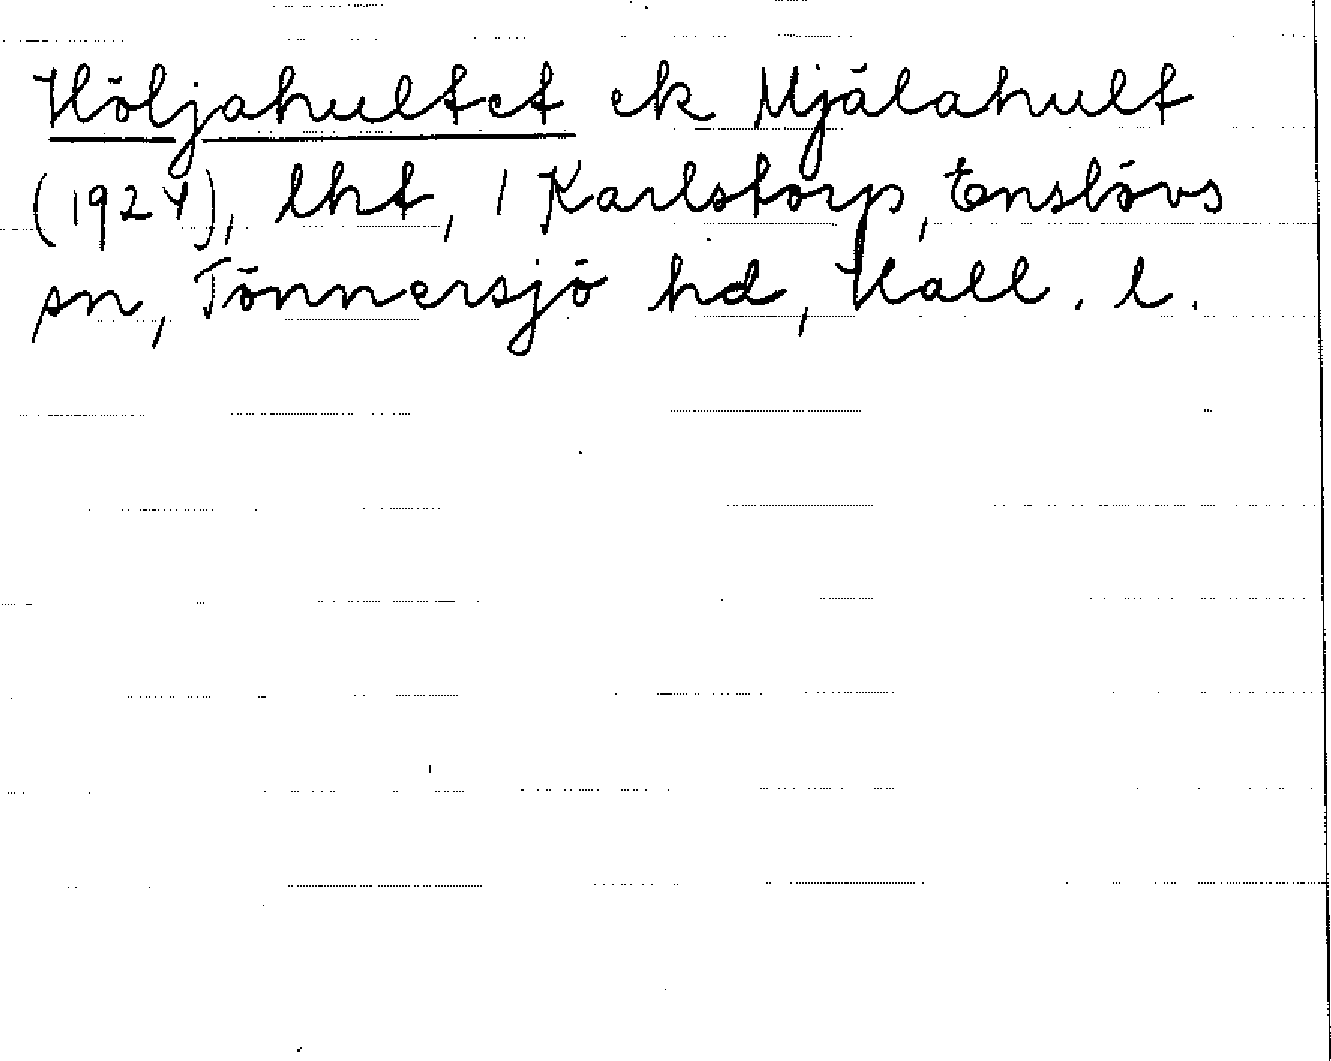 Höljahultet ek Mjälahult
(1924), lht, 1 Karlstorp, Enslövs
sn, Tönnersjö hd, Hall. l.